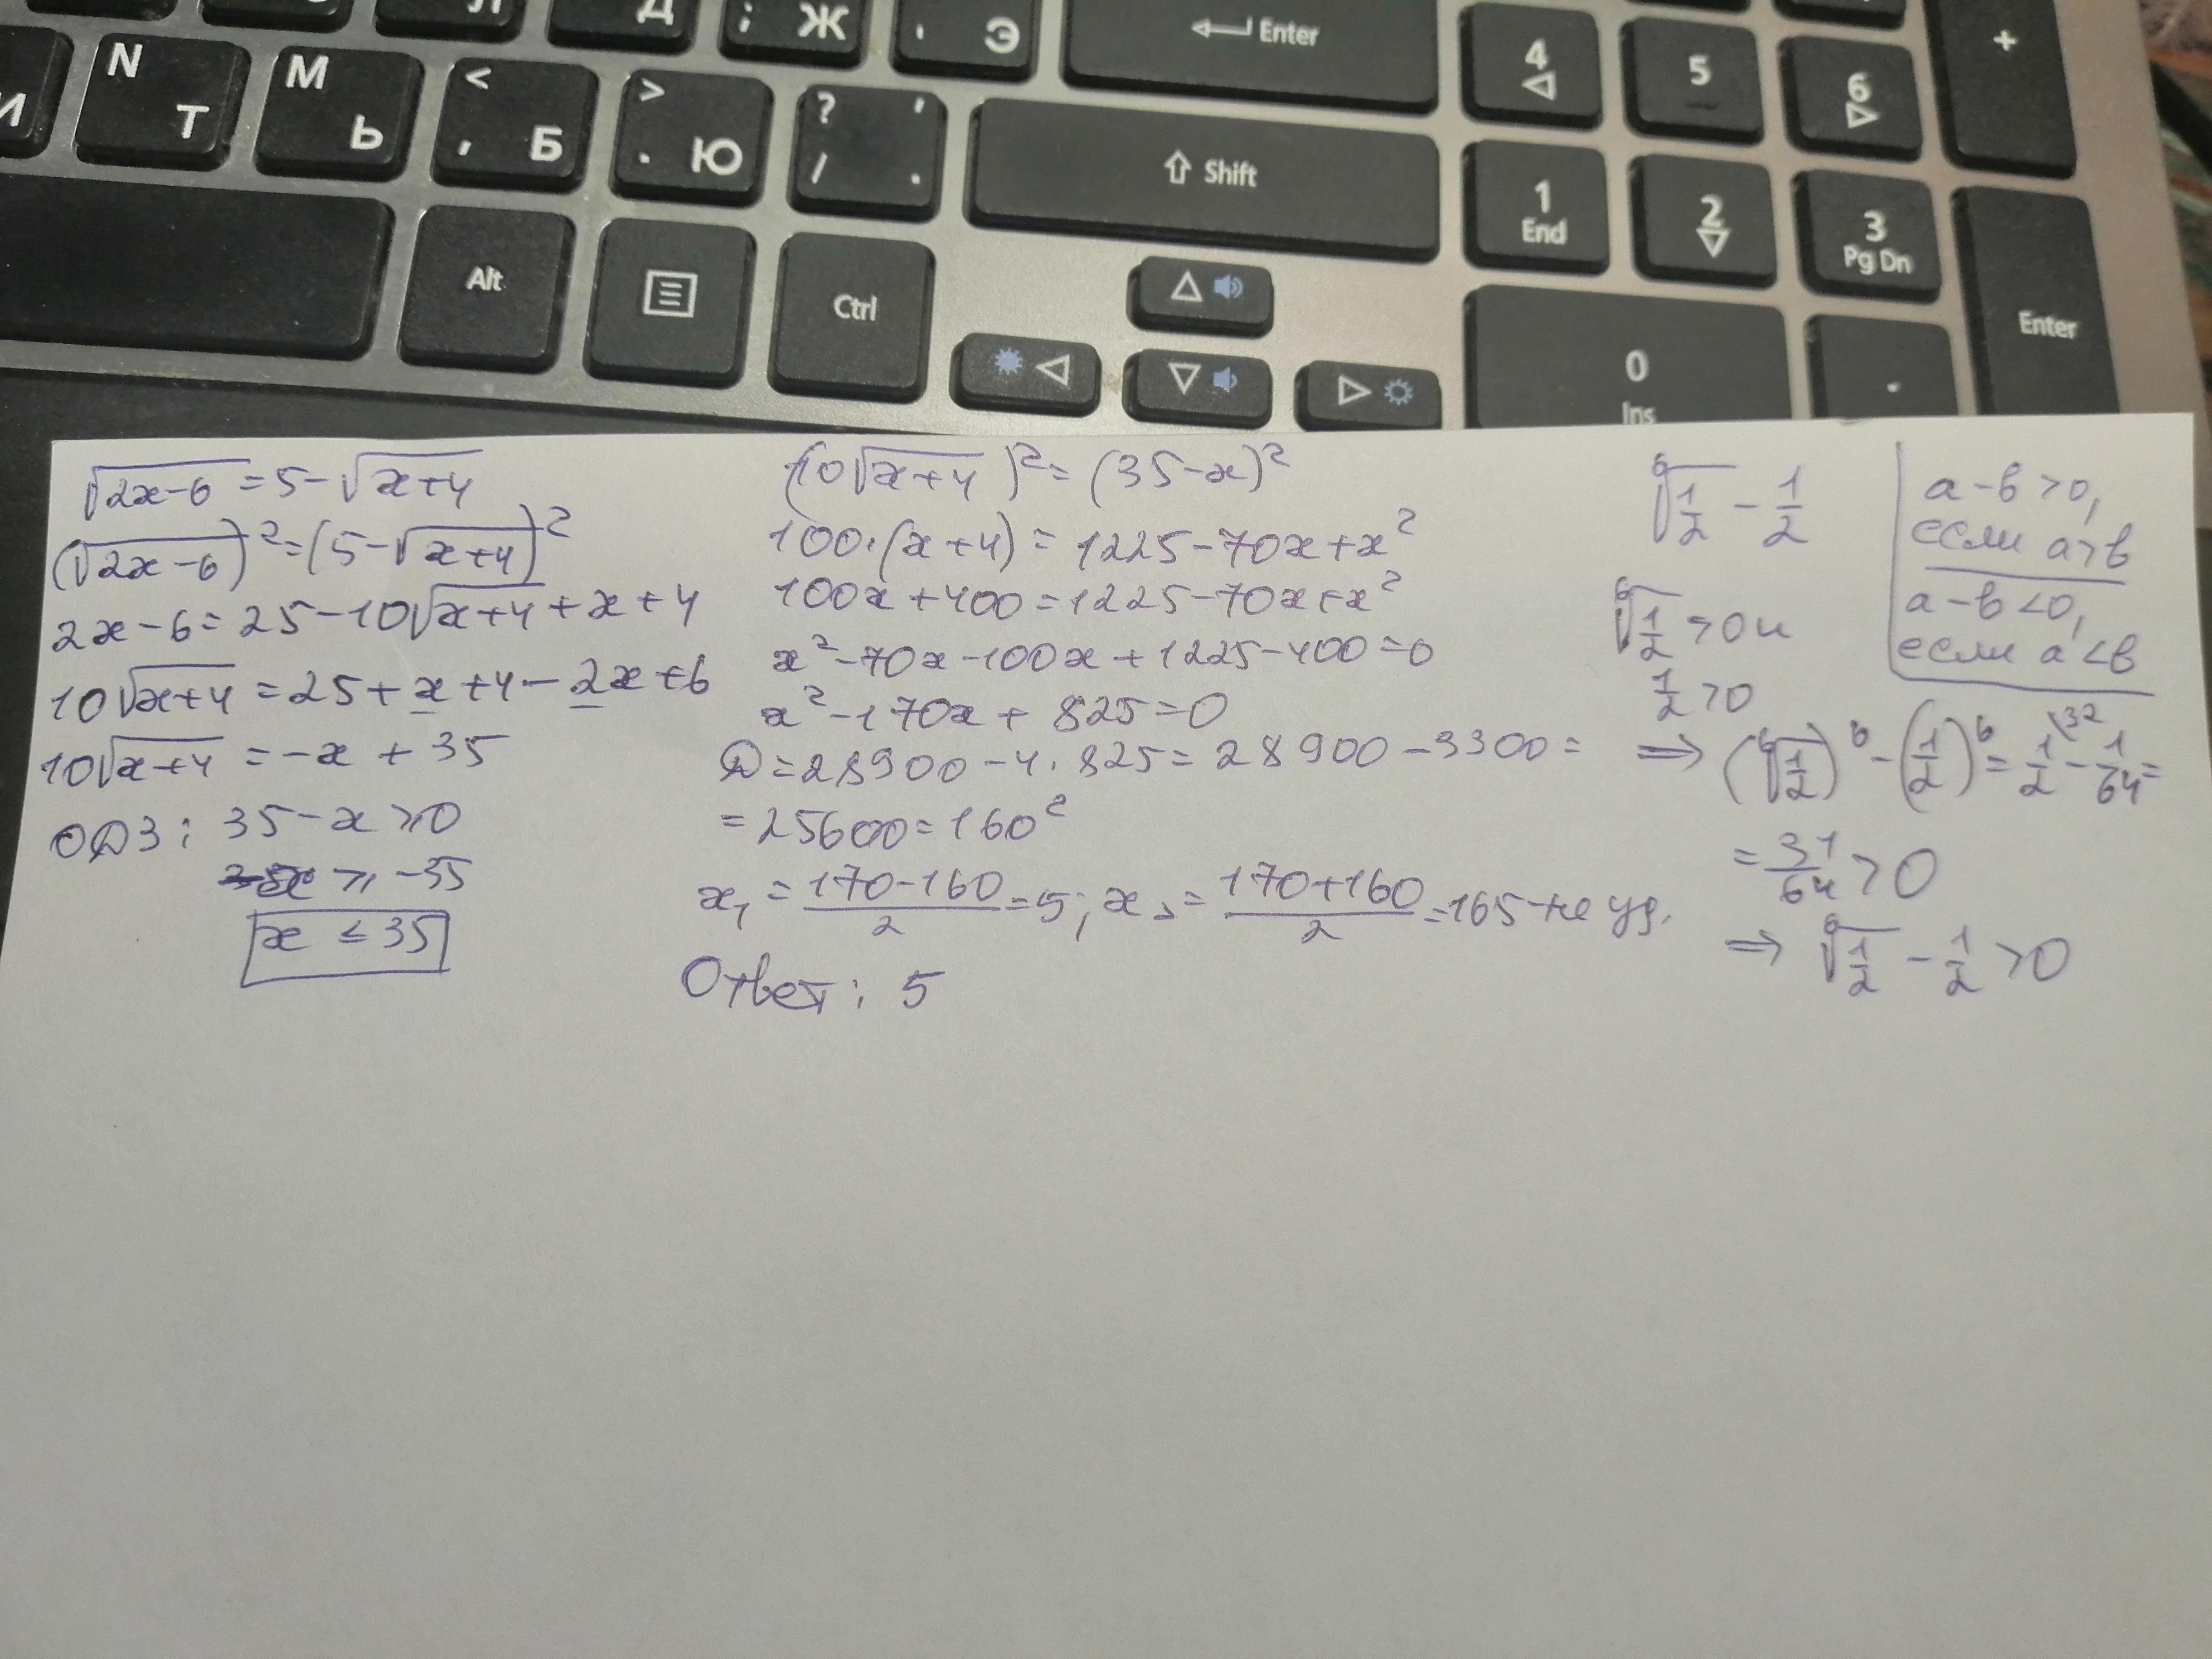 Л Д ; Ж ' Э Enter 4 5 6 +
И N Т М Ь < , Б > . Ю ? / ' . Shift 1 End 2 3 Pg Dn
Alt Ctrl 0 Ins . Enter
√(2x-6) = 5-√(x+4)
(√(2x-6))² = (5-√(x+4))²
2x-6 = 25-10√(x+4)+x+4
10√(x+4) = 25+x+4-2x+6
10√(x+4) = -x+35
ОДЗ: 35-x ≥ 0
-x ≥ -35
x ≤ 35
(10√(x+4))² = (35-x)²
100·(x+4) = 1225-70x+x²
100x+400 = 1225-70x+x²
x²-70x-100x+1225-400=0
x²-170x+825=0
D=28900-4·825=28900-3300=
=25600=160²
x₁ = (170-160)/2 = 5; x₂ = (170+160)/2 = 165-не уд.
Ответ: 5
⁶√(1/2) - 1/2
⁶√(1/2) > 0 и
1/2 > 0
a-b>0,
если a>b
a-b<0,
если a<b
⇒ (⁶√(1/2))⁶ - (1/2)⁶ = 1/2 \32 - 1/64 =
= 31/64 > 0
⇒ ⁶√(1/2) - 1/2 > 0